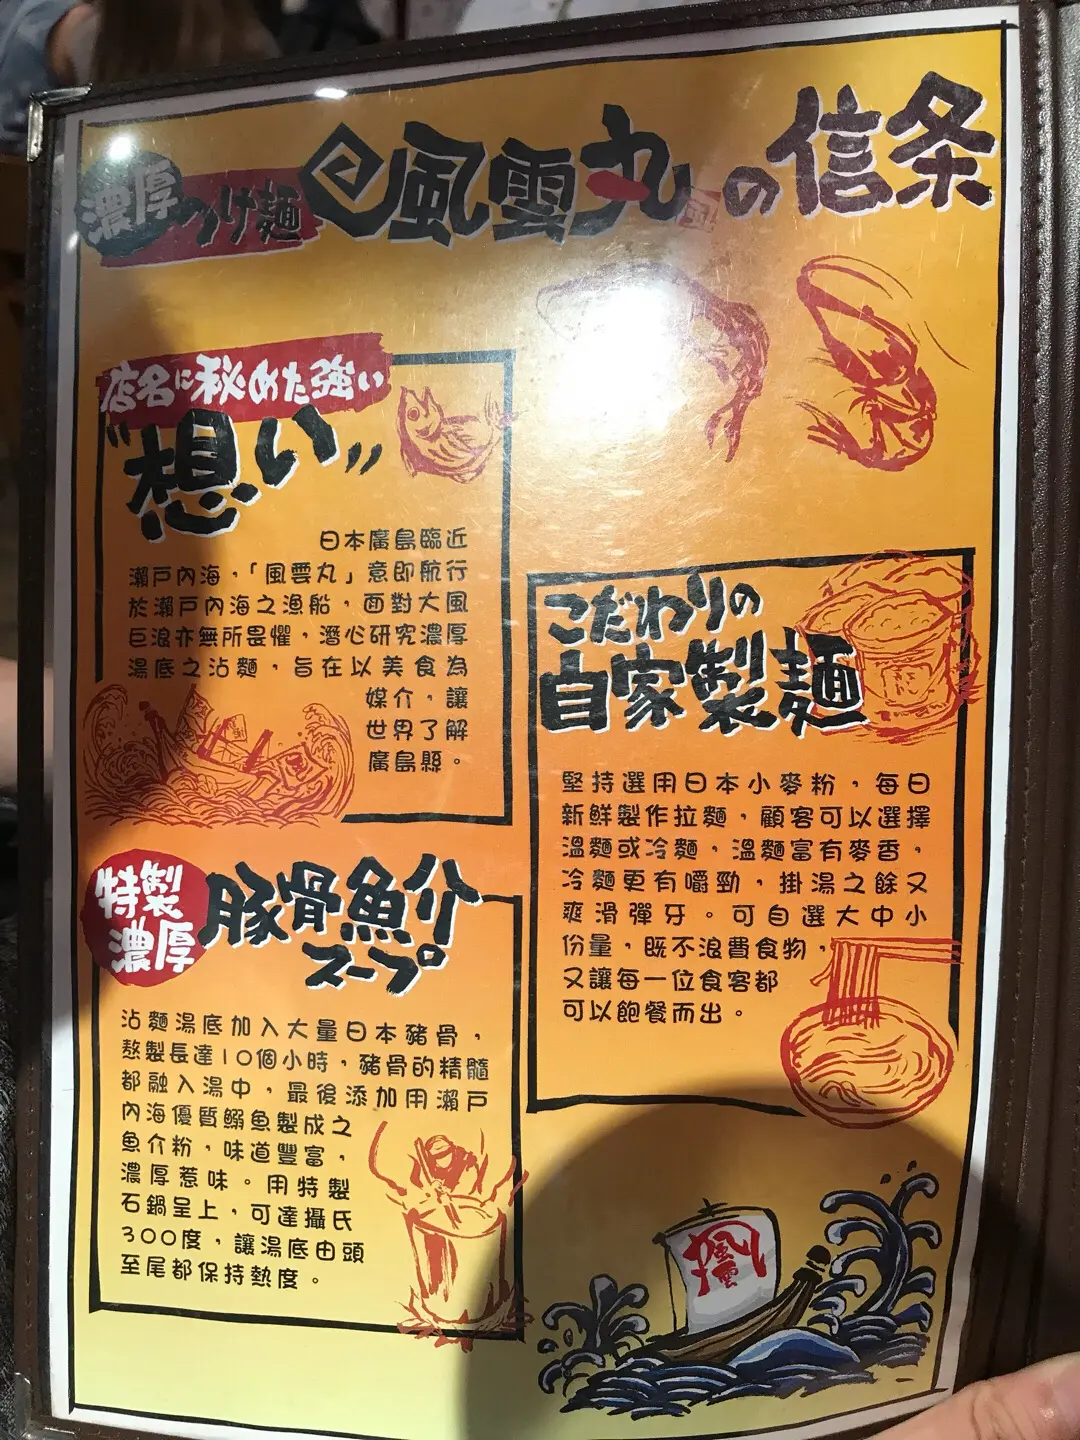 濃厚つけ麺 風雲丸の信条
店名に秘めた強い
"想い"
日本廣島臨近
瀨戶內海，「風雲丸」意即航行
於瀨戶內海之漁船，面對大風
巨浪亦無所畏懼，潛心研究濃厚
湯底之沾麵，旨在以美食為
媒介，讓
世界了解
廣島縣。
特製
濃厚
豚骨魚介
スープ
沾麵湯底加入大量日本豬骨，
熬製長達10個小時，豬骨的精髓
都融入湯中，最後添加用瀨戶
內海優質鰯魚製成之
魚介粉，味道豐富，
濃厚惹味。用特製
石鍋呈上，可達攝氏
300度，讓湯底由頭
至尾都保持熱度。
こだわりの
自家製麺
堅持選用日本小麥粉，每日
新鮮製作拉麵，顧客可以選擇
溫麵或冷麵，溫麵富有麥香，
冷麵更有嚼勁，掛湯之餘又
爽滑彈牙。可自選大中小
份量，既不浪費食物，
又讓每一位食客都
可以飽餐而出。
風雲